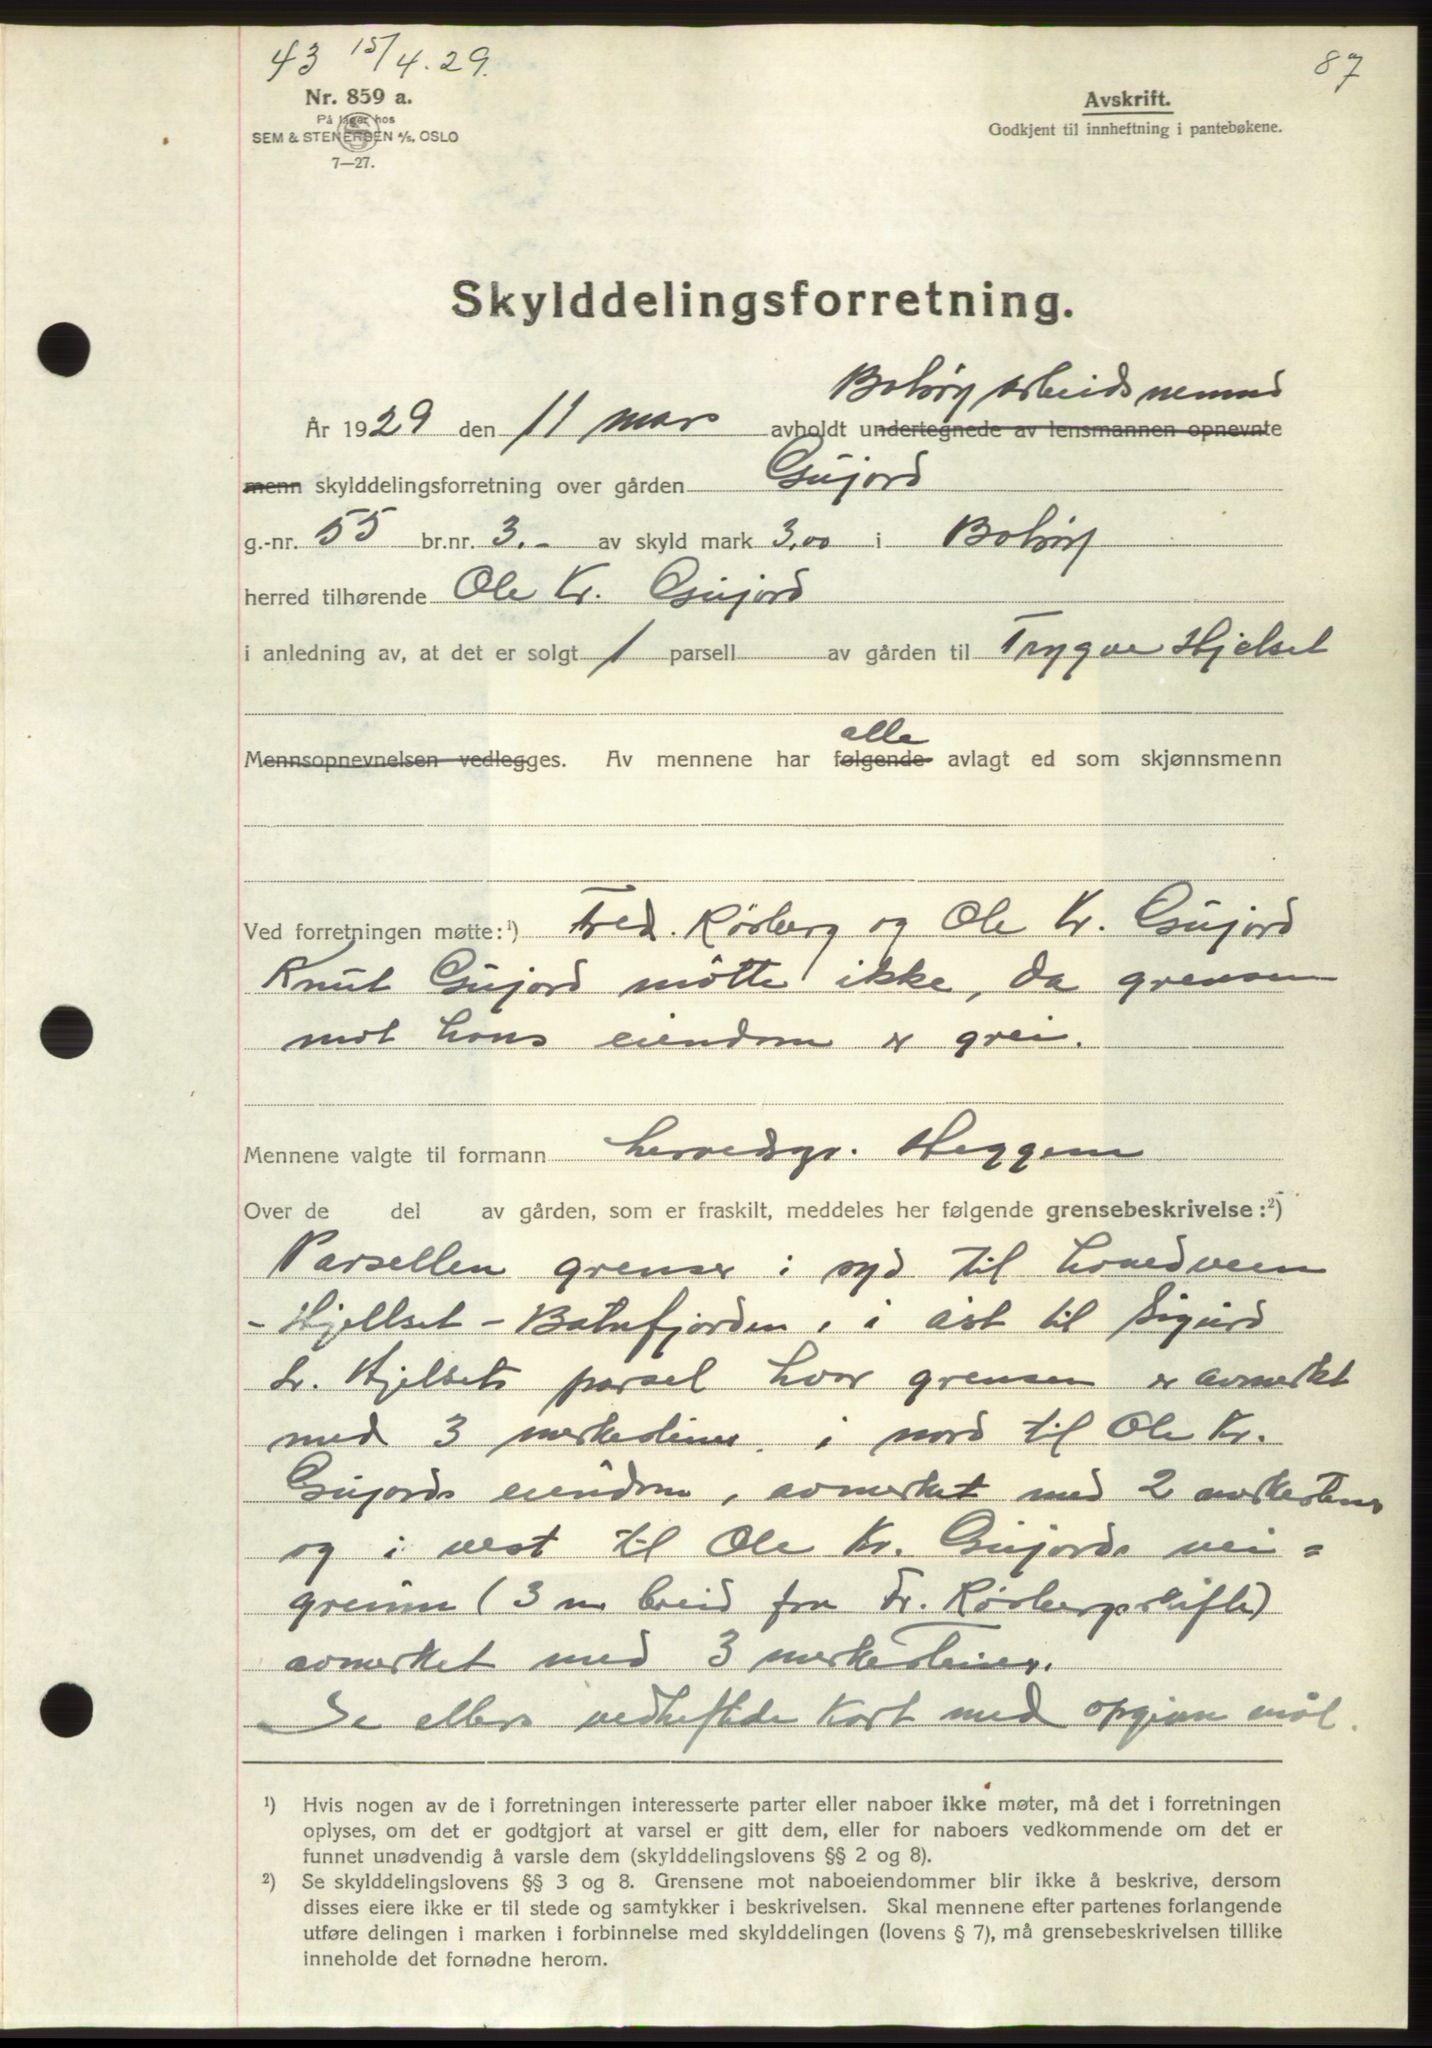 43 15/4.29.
87
Nr. 859 a.
På lager hos
SEM & STENERSEN A/S, OSLO
7—27.
Avskrift.
Godkjent til innheftning i pantebøkene.
Skylddelingsforretning.
Bolsøy arbeidsnemnd
År 1929 den 11 mars avholdt undertegnede av lensmannen opnevnte
menn skylddelingsforretning over gården Gujord
g.-nr. 55 br.nr. 3.- av skyld mark 3,00 i Bolsøy
herred tilhørende Ole Kr. Gujord
i anledning av, at det er solgt 1 parsell av gården til Trygve Hjelset
alle
Mennsopnevnelsen vedlegges. Av mennene har følgende avlagt ed som skjønnsmenn
Ved forretningen møtte:¹) Fred. Rösberg og Ole Kr. Gujord
Knut Gujord mötte ikke, da grensen
mot hans eiendom er grei.
Mennene valgte til formann herredsgr. Heggem
Over de del av gården, som er fraskilt, meddeles her følgende grensebeskrivelse:²)
Parsellen grenser i syd til hovedveien
- Hjellset - Batnfjorden, i øst til Sigurd
Hjelsets parsel hvor grensen er avmerkt
med 3 merkesteiner, i nord til Ole Kr.
Gujords eiendom, avmerket med 2 merkestene
og i vest til Ole Kr. Gujords vei-
grunn (3 m breid fra Fr. Rösbergs skifte)
avmerket med 3 merkesteiner.
Se ellers vedheftede kart med opgivne mål.
¹) Hvis nogen av de i forretningen interesserte parter eller naboer ikke møter, må det i forretningen
oplyses, om det er godtgjort at varsel er gitt dem, eller for naboers vedkommende om det er
funnet unødvendig å varsle dem (skylddelingslovens §§ 2 og 8).
²) Se skylddelingslovens §§ 3 og 8. Grensene mot naboeiendommer blir ikke å beskrive, dersom
disses eiere ikke er til stede og samtykker i beskrivelsen. Skal mennene efter partenes forlangende
utføre delingen i marken i forbinnelse med skylddelingen (lovens § 7), må grensebeskrivelsen tillike
inneholde det fornødne herom.